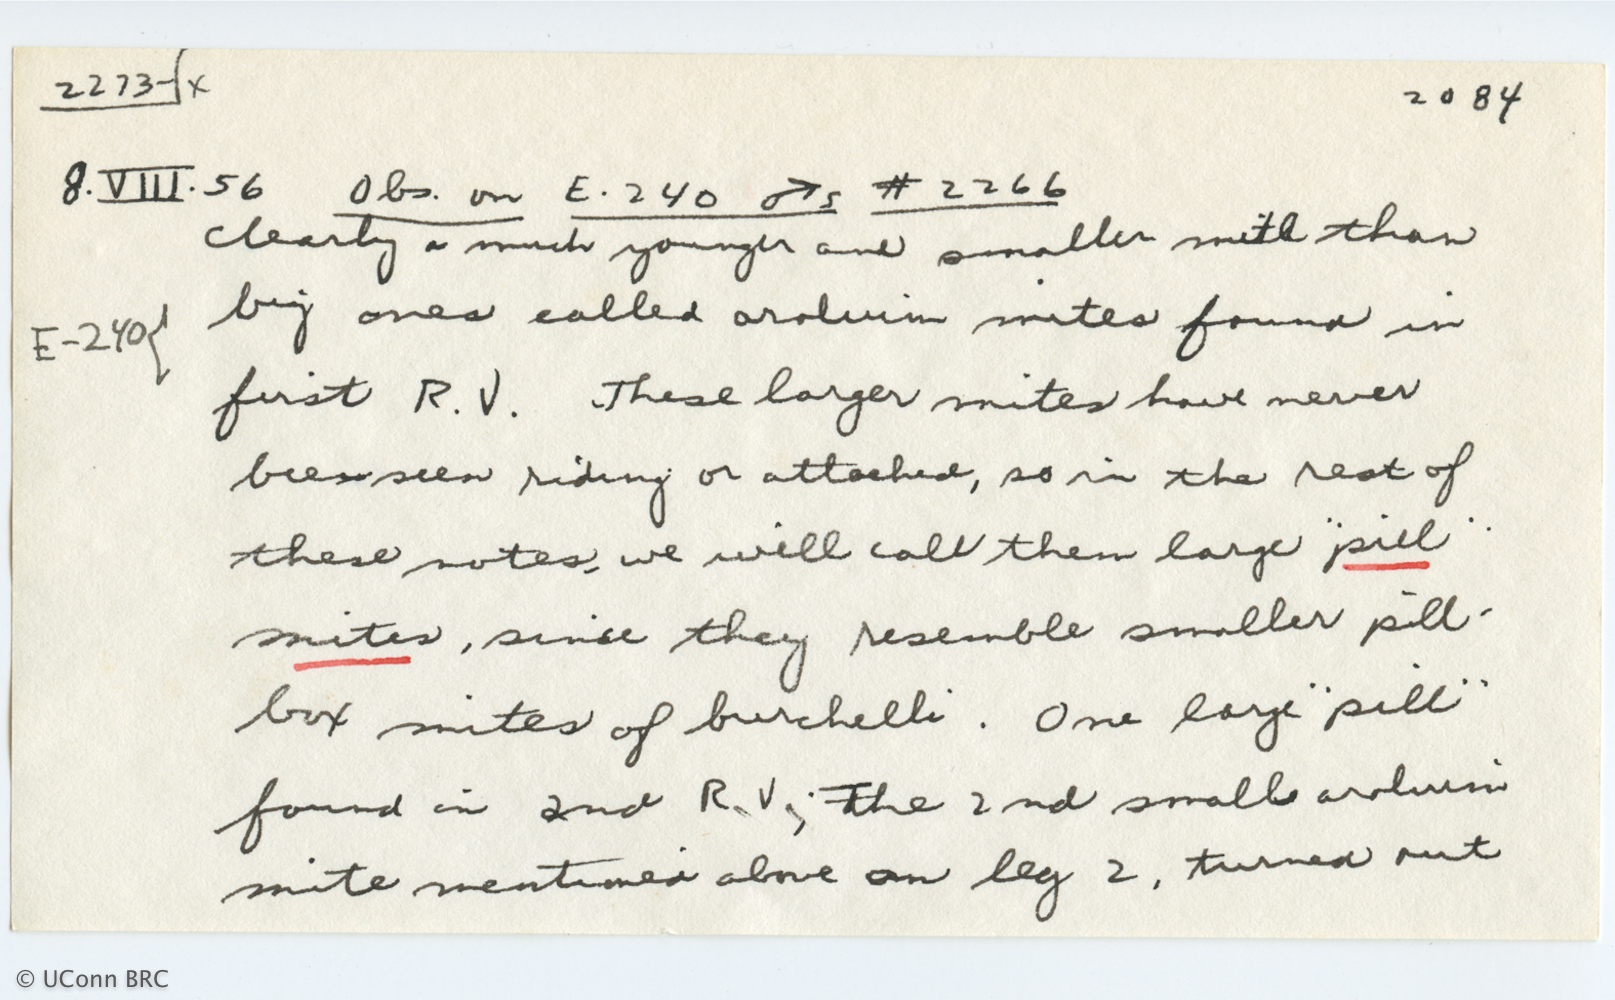 2273-x
2084
8.VIII.56 Obs. on E.240 ♂s # 2266
clearly a much younger and smaller mite than
big ones called arolium mites found in
E-240{
first R.V. These larger mites have never
been seen riding or attached, so in the rest of
these notes, we will call them large "pill"
mites, since they resemble smaller pill-
box mites of burchelli. One large "pill"
found in 2nd R.V.; The 2nd small arolium
mite mentioned above on leg 2, turned out
© UConn BRC